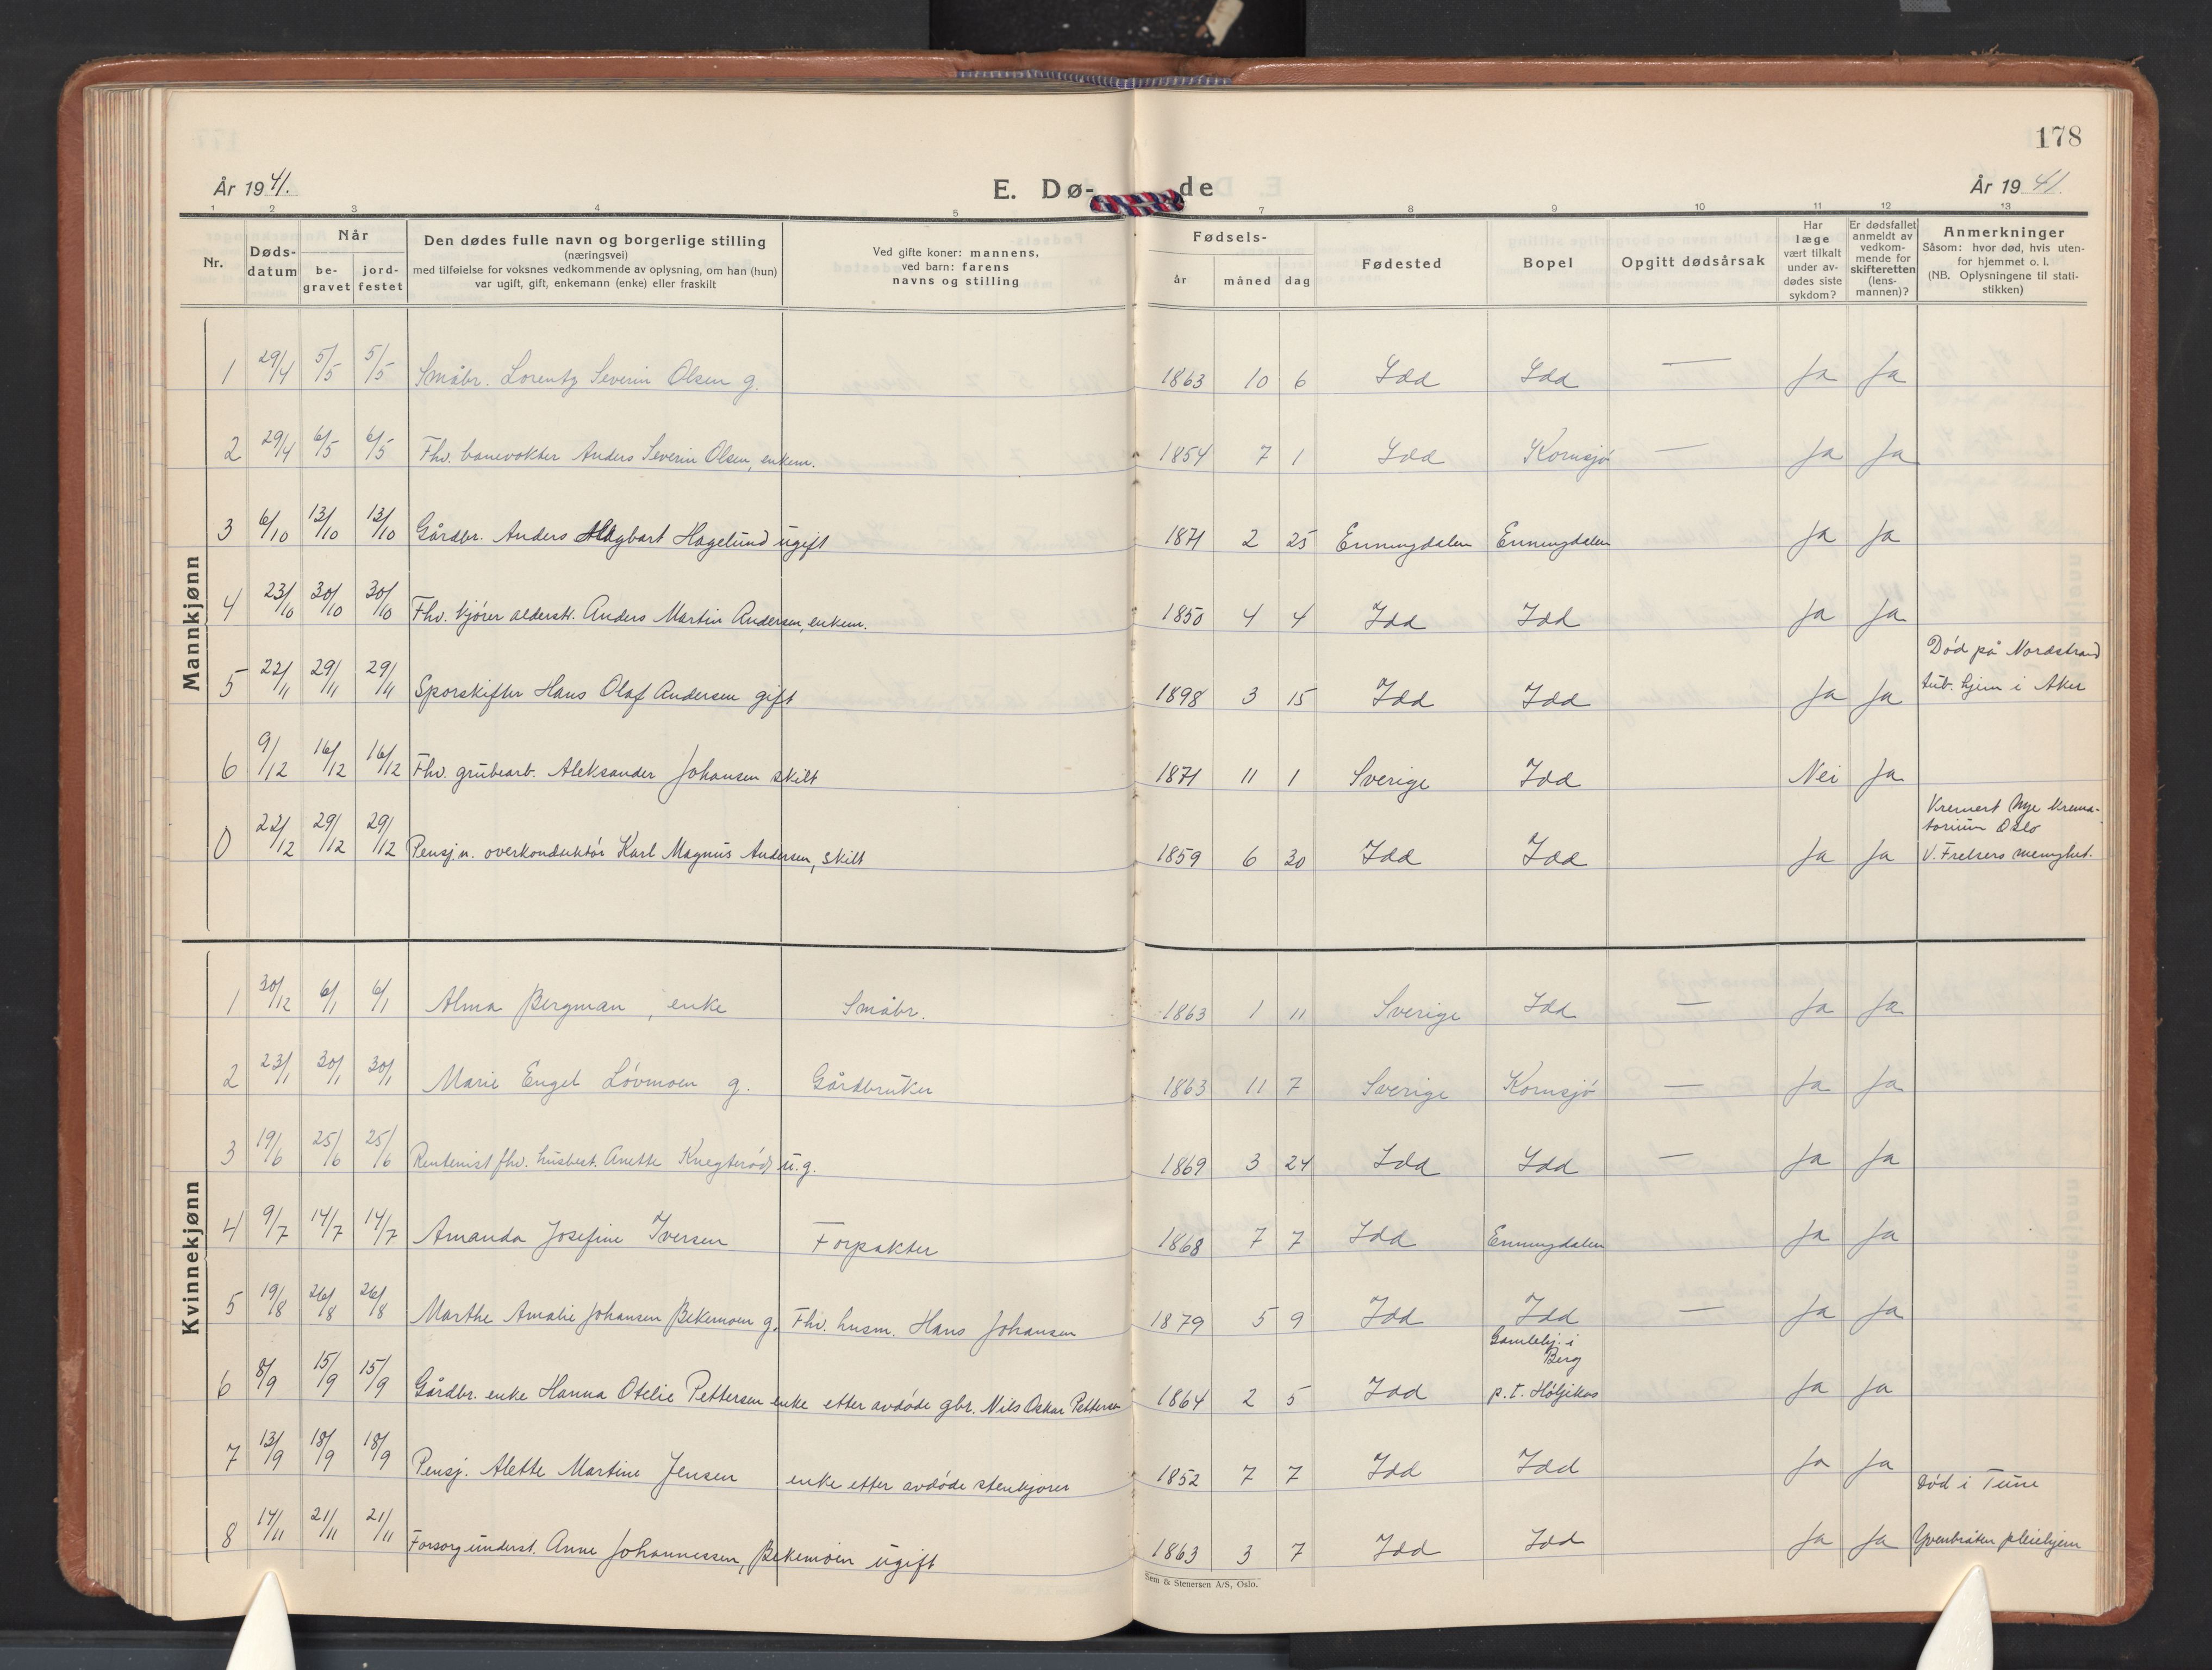 178
År 1941.
E. Dø-
de
År 1941.
1 2 3 4 5 7 8 9 10 11 12 13
Nr.
Døds-
datum
Når
be-
gravet
jord-
festet
Den dødes fulle navn og borgerlige stilling
(næringsvei)
med tilføielse for voksnes vedkommende av oplysning, om han (hun)
var ugift, gift, enkemann (enke) eller fraskilt
Ved gifte koner: mannens,
ved barn: farens
navns og stilling
Fødsels-
år
måned
dag
Fødested
Bopel
Opgitt dødsårsak
Har
læge
vært tilkalt
under av-
dødes siste
sykdom?
Er dødsfallet
anmeldt av
vedkom-
mende for
skifteretten
(lens-
mannen)?
Anmerkninger
Såsom: hvor død, hvis uten-
for hjemmet o. l.
(NB. Oplysningene til stati-
stikken)
Mannkjønn
1 29/4 5/5 5/5 Småbr. Lorentz Severin Olsen g. 1863 10 6 Idd Idd — Ja Ja
2 29/4 6/5 6/5 Fhv. banevokter Anders Severin Olsen, enkem. 1854 7 1 Idd Kornsjø — Ja Ja
3 6/10 13/10 13/10 Gårdbr. Anders Hagbart Hagelund ugift 1871 2 25 Enningdalen Enningdalen Ja Ja
4 23/10 30/10 30/10 Fhv. kjører alderstr. Anders Martin Andersen, enkem. 1850 4 4 Idd Idd Ja Ja
Død på Nordstrand
5 22/11 29/11 29/11 Sporskifter Hans Olaf Andersen gift 1898 3 15 Idd Idd Ja Ja tub. hjem i Aker
6 9/12 16/12 16/12 Fhv. grubearb. Aleksander Johansen skilt 1871 11 1 Sverige Idd Nei Ja
Kremert Nye Krema-
torium Oslo
0 22/12 29/12 29/12 Pensj n. overkonduktør Karl Magnus Andersen, skilt 1859 6 30 Idd Idd Ja Ja V. Frelsers menighet.
Kvinnekjønn
1 30/12 6/1 6/1 Alma Bergman, enke Småbr. 1863 1 11 Sverige Idd — Ja Ja
2 23/1 30/1 30/1 Marie Engel Løvmoen g. Gårdbruker 1863 11 7 Sverige Kornsjø — Ja Ja
3 19/6 25/6 25/6 Rentenist fhv. husbest. Anette Knegterød u.g. 1869 3 24 Idd Idd — Ja Ja
4 9/7 14/7 14/7 Amanda Josefine Iversen Forpakter 1868 7 7 Idd Enningdalen Ja Ja
5 19/8 26/8 26/8 Marthe Amalie Johansen Bekemoen g. Fhv. husm. Hans Johansen 1879 5 9 Idd Idd — Ja Ja
Gamlehj. i
Berg
6 8/9 15/9 15/9 Gårdbr. enke Hanna Otelie Pettersen enke etter avdøde gbr. Nils Oskar Pettersen 1864 2 5 Idd p.t. Høljikas Ja Ja
7 13/9 18/9 18/9 Pensj. Alette Martine Jensen enke etter avdøde stenkjører 1852 7 7 Idd Idd Ja Ja
Død i Tune
8 14/11 21/11 21/11 Forsorgunderst. Anne Johannessen, Bekemoen ugift 1863 3 7 Idd Idd Ja Ja Yvenbråten pleiehjem
Sem & Stenersen A/S, Oslo.